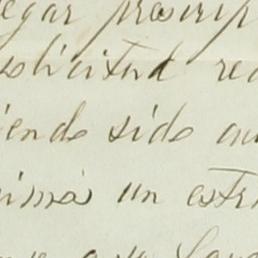 egar prescrip
solicitud re
iendo sido au
nima un estr